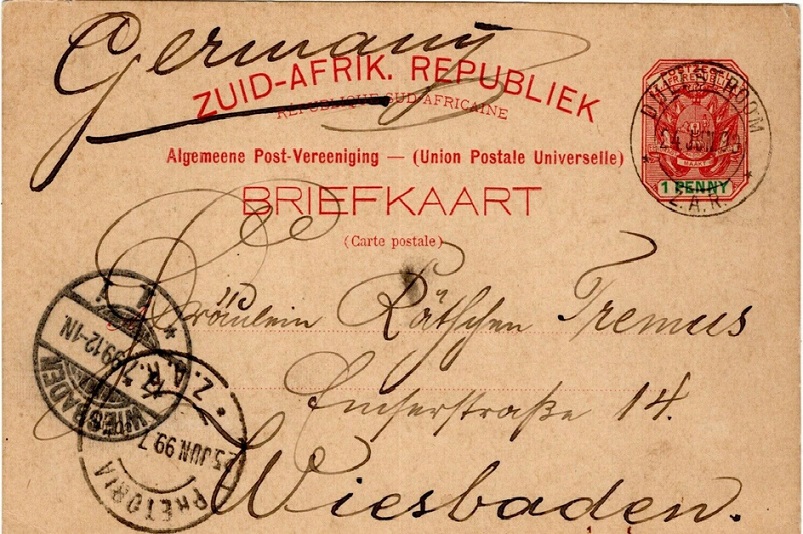 Germany
ZUID-AFRIK. REPUBLIEK
REPUBLIQUE SUD-AFRICAINE
Algemeene Post-Vereeniging — (Union Postale Universelle)
BRIEFKAART
(Carte postale)
POSTZEGEL
Z. AFR. REPUBLIEK
1 PENNY
24 JUN 99
Z.A.R.
Fräulein Käthchen Tremus
Emserstraße 14.
Wiesbaden.
WIESBADEN
99.12-1N.
PRETORIA
25 JUN 99.7
Z.A.R.